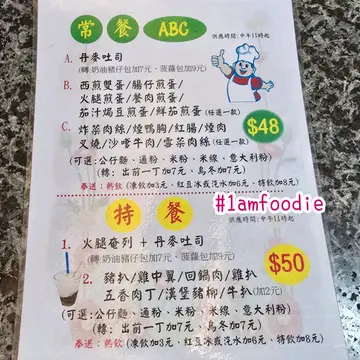 常餐 ABC
供應時間:中午11時起
A. 丹麥吐司
(轉:奶油豬仔包加7元、菠蘿包加9元)
B. 西煎雙蛋/腸仔煎蛋/
火腿煎蛋/餐肉煎蛋/
茄汁焗豆煎蛋/鮮茄煎蛋 (任選一款)
C. 炸菜肉絲/煙鴨胸/紅腸/煙肉
叉燒/沙嗲牛肉/雪菜肉絲 (任選一款)
$48
(可選:公仔麵、通粉、米粉、米線、意大利粉)
(轉: 出前一丁加7元、烏冬加7元)
奉送:熱飲 (凍飲加3元、紅豆冰或汽水加6元、特飲加8元)
#1amfoodie
特餐
供應時間:中午11時起
1. 火腿奄列 + 丹麥吐司
(轉:奶油豬仔包加7元、菠蘿包加9元)
$50
2. 豬扒/雞中翼/回鍋肉/雞扒
五香肉丁/漢堡豬柳/牛扒 (加2元)
(可選:公仔麵、通粉、米粉、米線、意大利粉)
(轉: 出前一丁加7元、烏冬加7元)
奉送:熱飲 (凍飲加3元、紅豆冰或汽水加6元、特飲加8元)